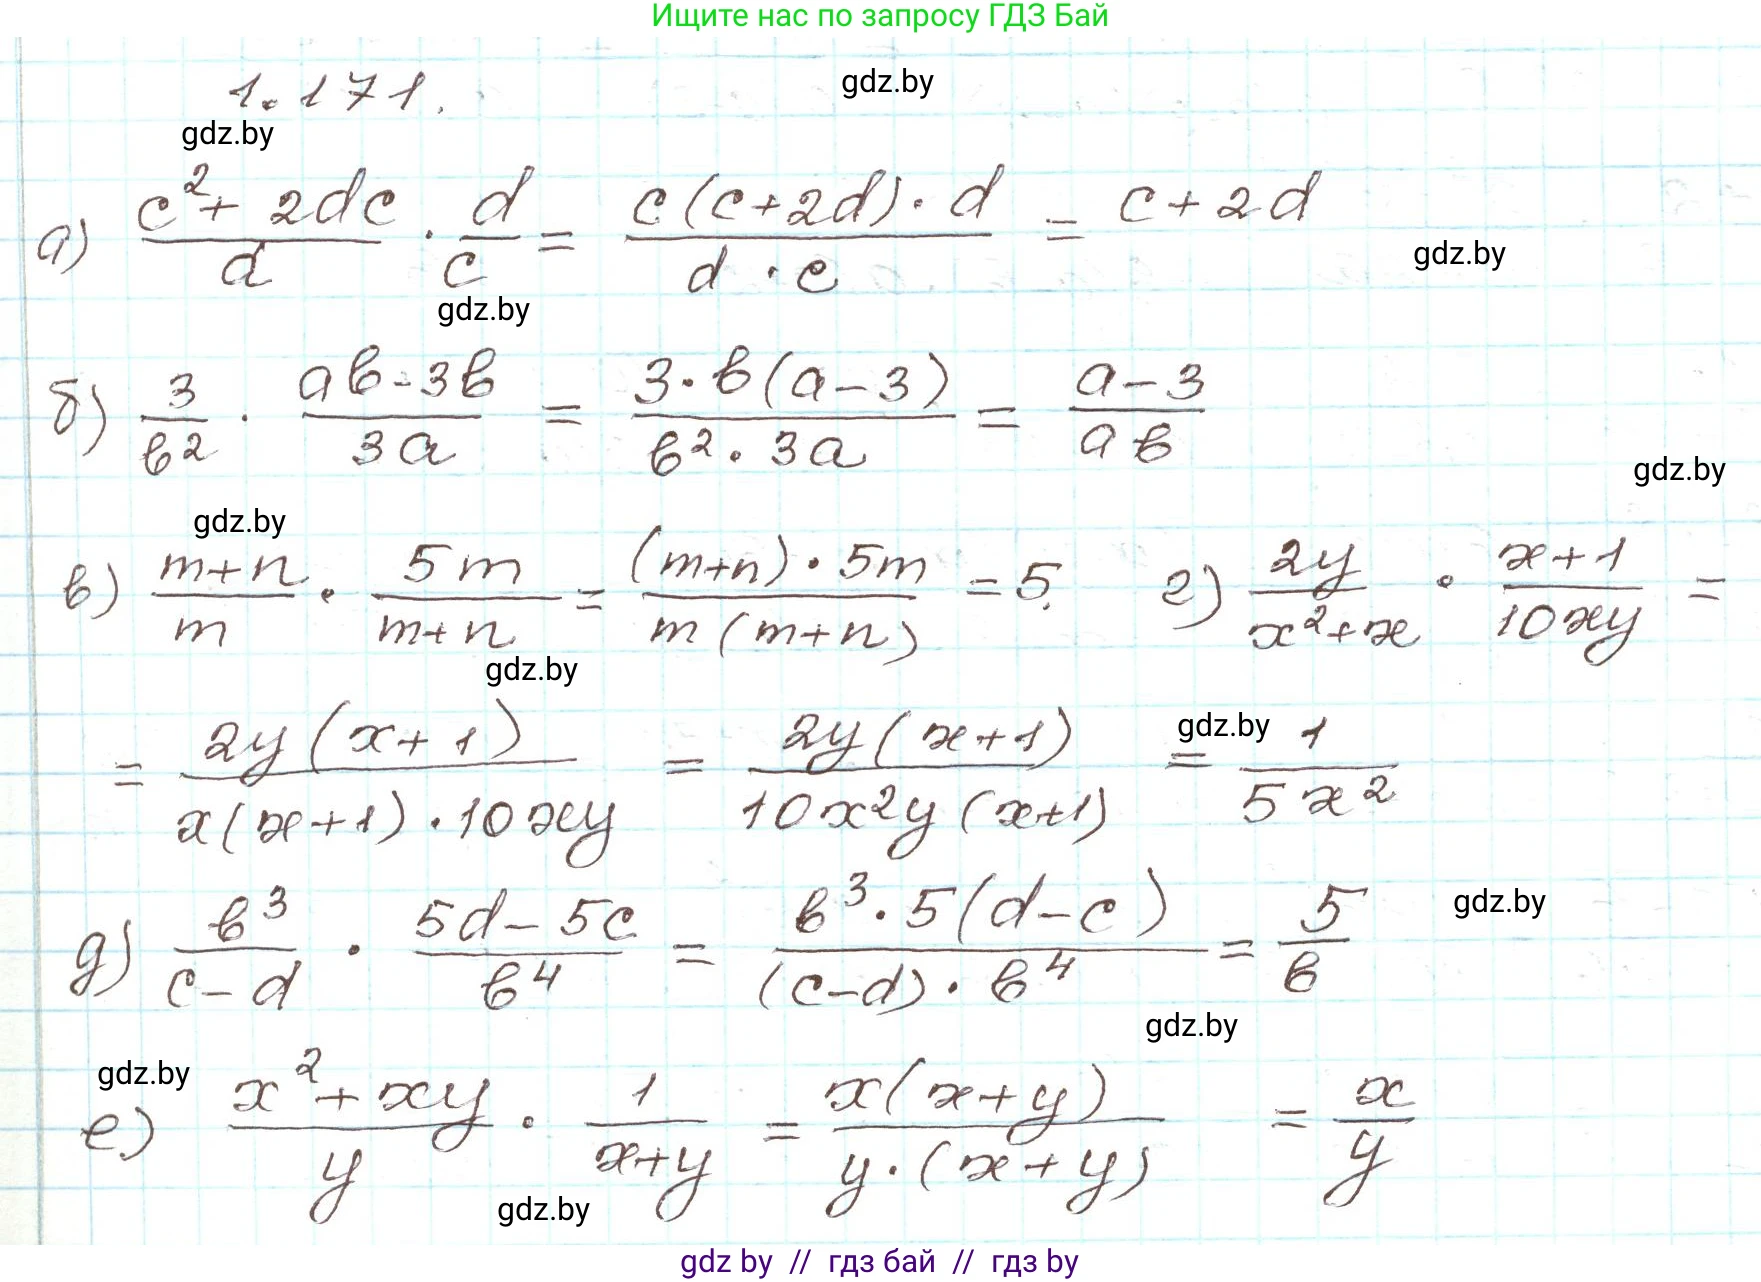 Ищите нас по запросу ГДЗ Бай
1.171.
gdz.by
gdz.by
а) (c² + 2dc)/d · d/c = (c(c+2d)·d)/(d·c) = c + 2d
gdz.by
gdz.by
б) 3/b² · (ab-3b)/(3a) = (3·b(a-3))/(b²·3a) = (a-3)/(ab)
gdz.by
gdz.by
в) (m+n)/m · (5m)/(m+n) = ((m+n)·5m)/(m(m+n)) = 5. г) (2y)/(x²+x) · (x+1)/(10xy) =
gdz.by
= (2y(x+1))/(x(x+1)·10xy) = (2y(x+1))/(10x²y(x+1)) = 1/(5x²)
gdz.by
д) b³/(c-d) · (5d-5c)/b⁴ = (b³·5(d-c))/((c-d)·b⁴) = 5/b
gdz.by
gdz.by
gdz.by
е) (x²+xy)/y · 1/(x+y) = (x(x+y))/(y·(x+y)) = x/y
gdz.by
gdz by // гдз бай // гдз by